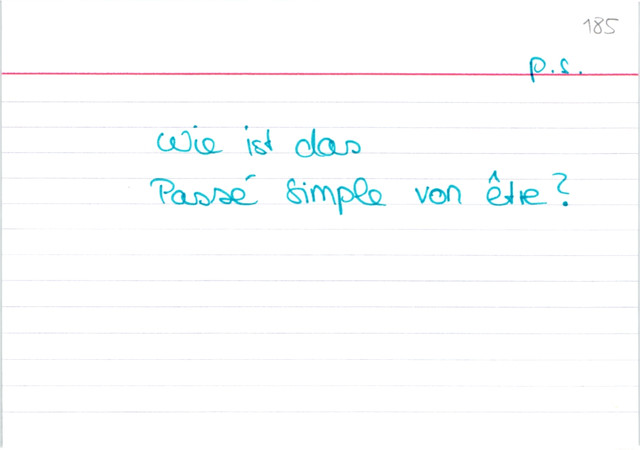 185
p.s.
Wie ist das
Passé simple von être?